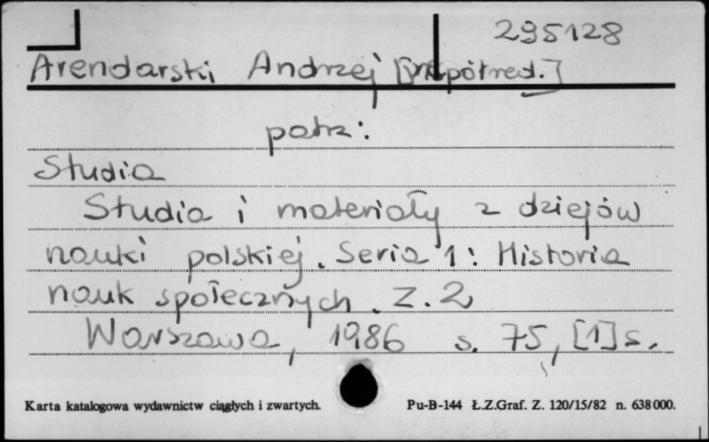 295128
Arendarski Andrzej [współred.]
patrz:
Studia
Studia i materiały z dziejów
nauki polskiej. Seria 1: Historia
nauk społecznych. Z. 2
Warszawa, 1986 s. 75, [1] s.
Karta katalogowa wydawnictw ciągłych i zwartych. Pu-B-144 Ł.Z.Graf. Z. 120/15/82 n. 638000.